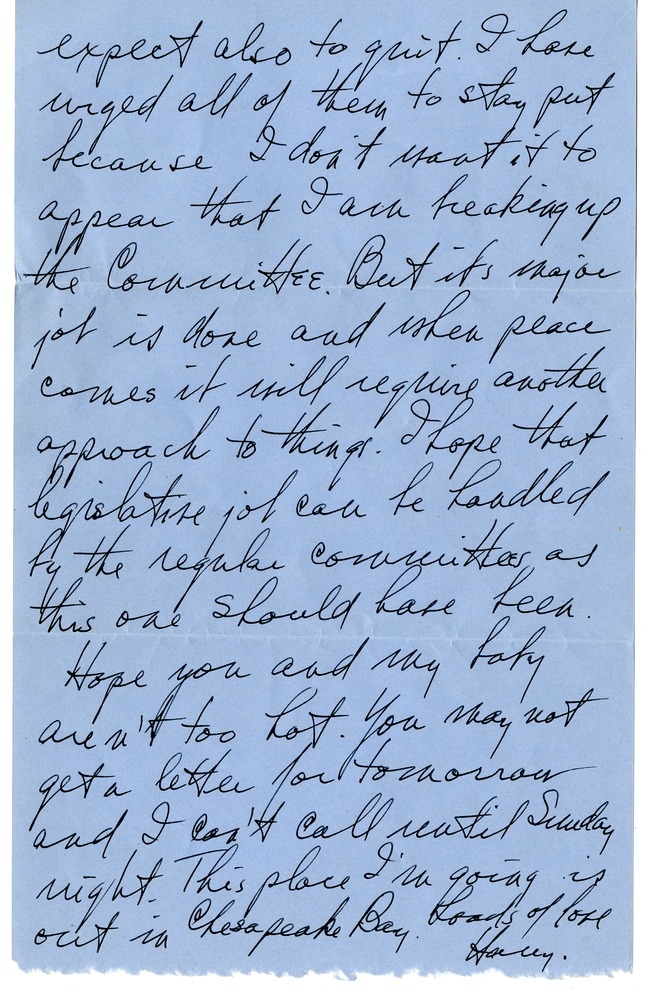 expect also to quit. I have
urged all of them to stay put
because I don't want it to
appear that I am breaking up
the Committee. But its major
job is done and when peace
comes it will require another
approach to things. I hope that
legislative job can be handled
by the regular committees as
this one should have been.
Hope you and my baby
aren't too hot. You may not
get a letter for tomorrow
and I can't call until Sunday
night. This place I'm going is
out in Chesapeake Bay. Loads of love
Harry.